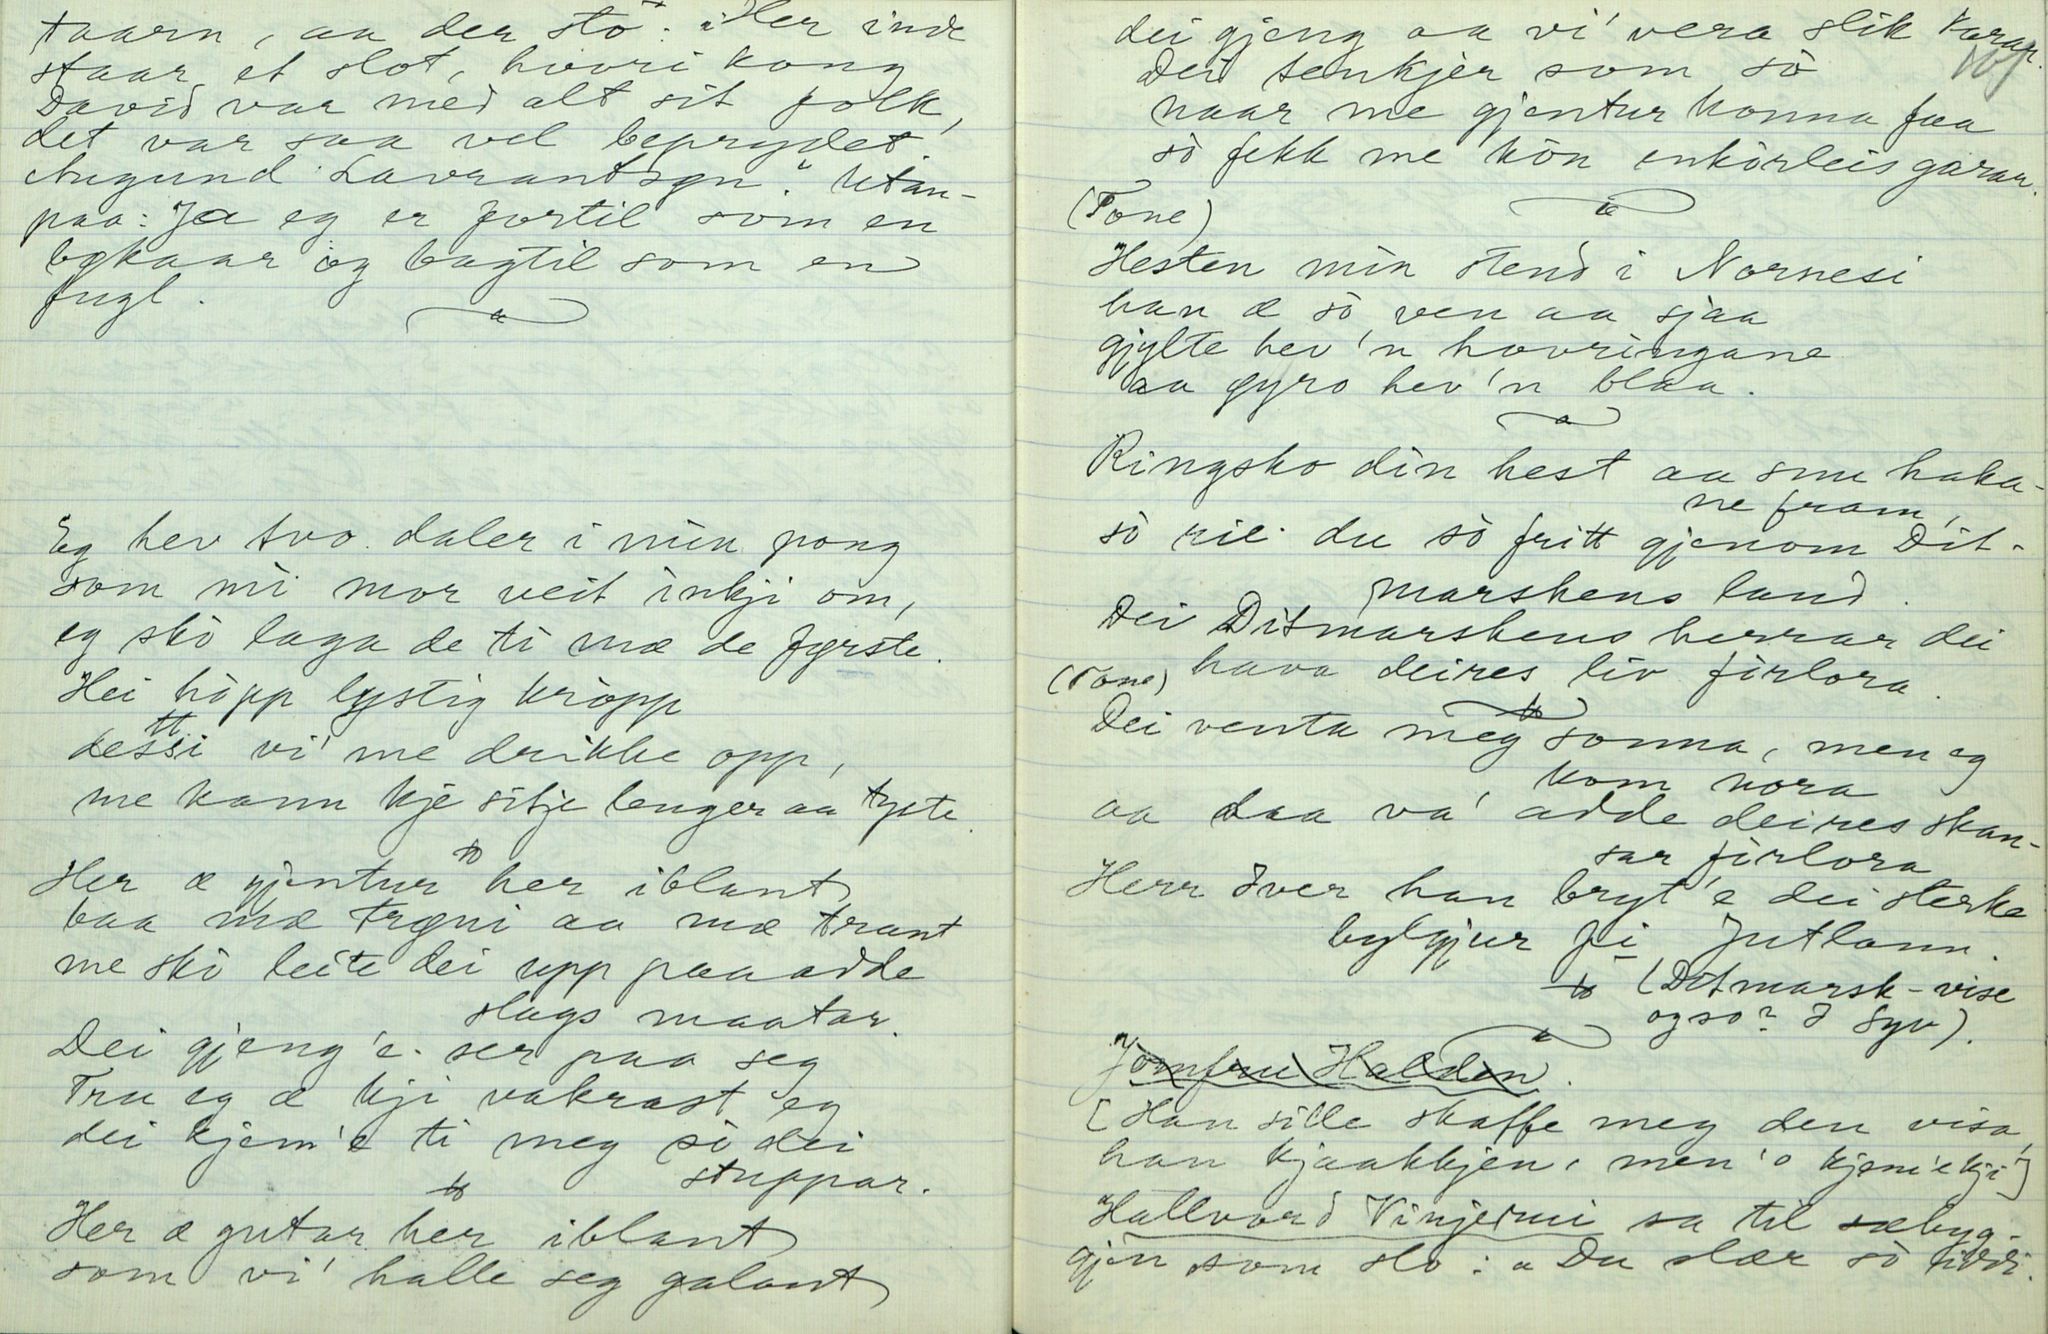 taarn, aa der sto: "Her inde
staar et slot, hvori kong
David var med alt sit folk,
det var saa vel beprydet
Augund Lavrantsøn." Utan-
paa: Ja eg er fortil som en
bokaar og bagtil som en
fugl.
Eg hev tvo daler i min pong
som mi mor veit inkji om,
eg skò laga de ti mæ de fyrste.
Hei hòpp lystig kròpp
detti vi' me drikke opp,
me kann kje sitje lenger aa tyste.
Her æ gjentur her iblant
baa mæ trøni aa mæ trant
me skò leite dei upp paa adde
slags maatar.
Dei gjeng'e ser paa seg
Tru eg æ kji vakrast eg
dei kjem'e ti meg sò dei
stuppar.
Her æ gutar her iblant
som vi' halle seg galant
dei gjeng aa vi' vera slik karar.
Dei tenkjer som sò
naar me gjentur konna faa
sò fekk me kòn enkòrleis garar.
(Tone)
Hesten min stend i Nornesi
han æ sò ven aa sjaa
gjylte hev'n hovringane
aa gyro hev'n blaa.
Ringsko din hest aa snu haka-
ne fram,
sò rie du sò fritt gjenom Dit-
marskens land.
Dei Ditmarskens herrar dei
hava deires liv fòrlora.
(Tone)
Dei venta meg sonna, men eg
kom nora
aa daa va' adde deires skan-
sar fòrlora
Herr Iver han bryt'e dei sterke
bylgjur fi Jutlann.
(Ditmarsk-vise
ogso? I Syv).
Jomfru Halden.
[Han sille skaffe meg den visa,
han kjaakkjen, men 'o kjem'e kji]
Hallvord Vinjerui sa til sæbyg-
gjen som slo: "Du slær sò